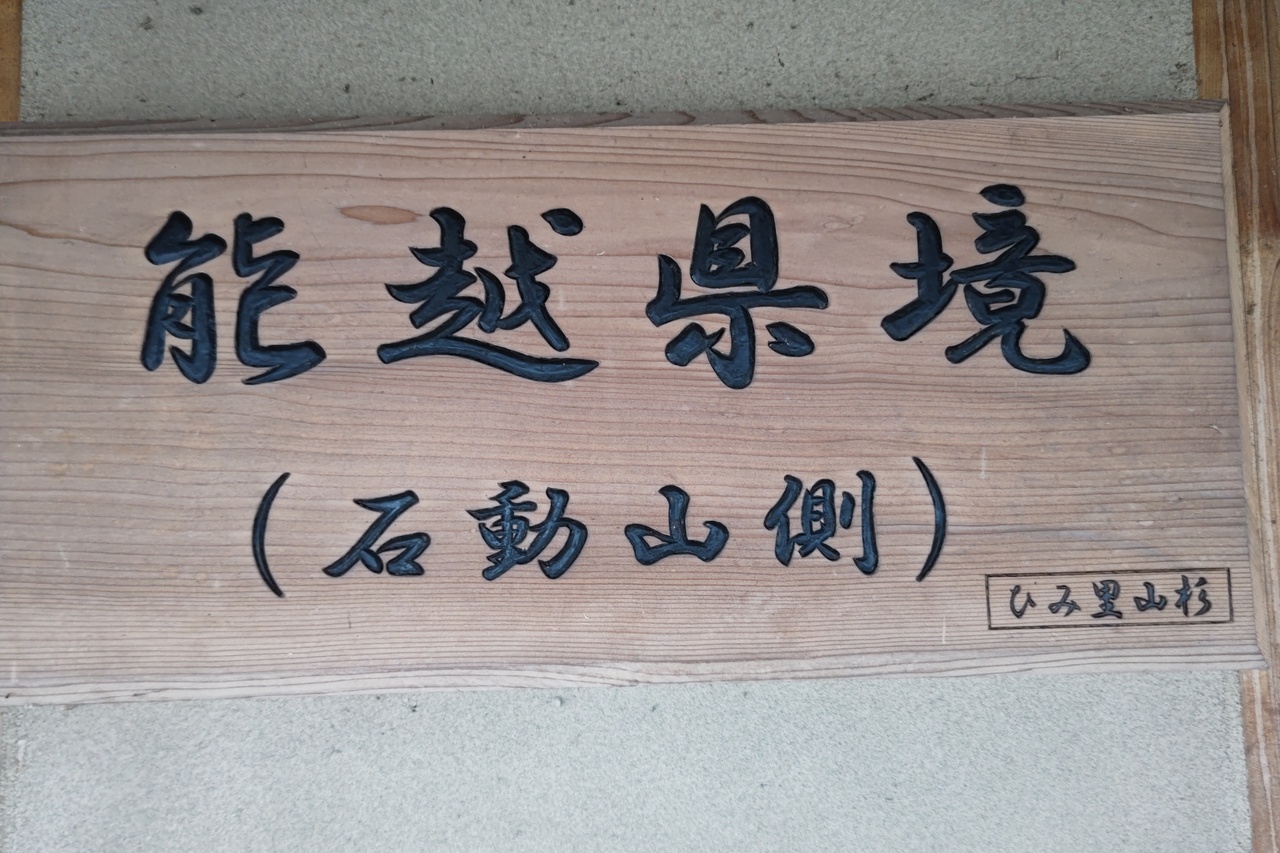 能越県境
(石動山側)
ひみ里山杉